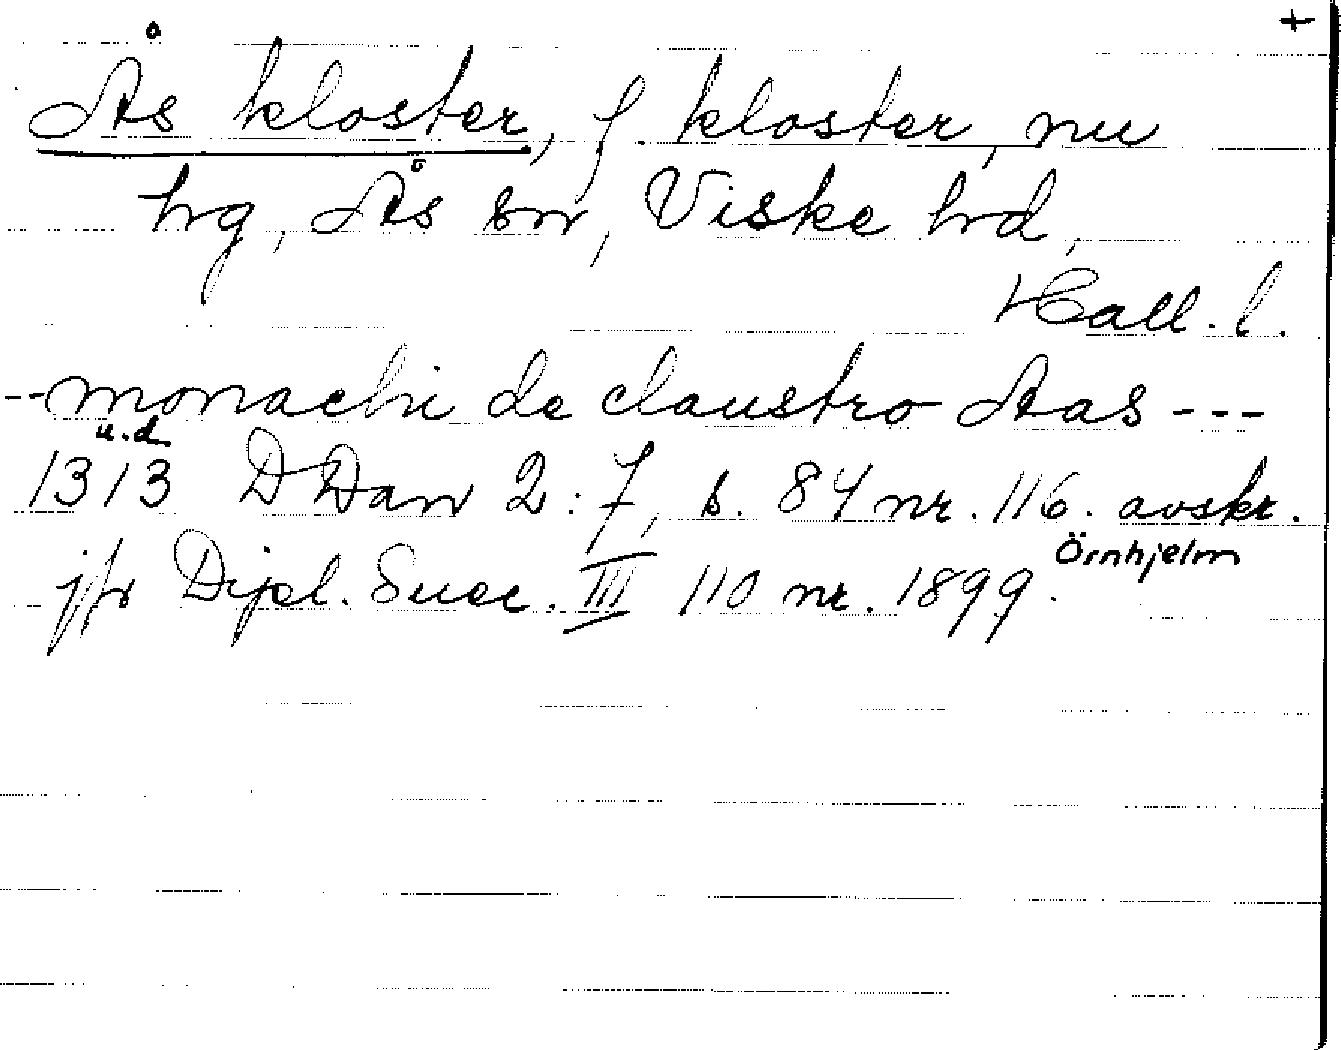 +
Ås kloster, f. kloster, nu
hg, Ås sn, Viske hd,
Hall. l.
-- monachi de claustro Aas ---
u.d.
1313 DDan 2:7, s. 84 nr. 116. avskr.
Örnhjelm
jfr Dipl. Suec. III 110 nr. 1899.